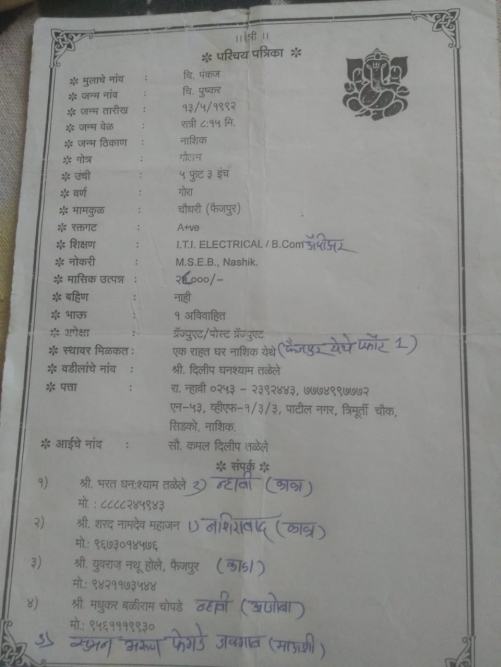 ॥ श्री ॥
❊ परिचय पत्रिका ❊
❊ मुलाचे नांव : चि. पंकज
❊ जन्म नांव : चि. पुष्कर
❊ जन्म तारीख : १३/५/१९९२
❊ जन्म वेळ : रात्री ८:१५ मि.
❊ जन्म ठिकाण : नाशिक
❊ गोत्र : गौतम
❊ उंची : ५ फुट ३ इंच
❊ वर्ण : गोरा
❊ मामकुळ : चौधरी (फैजपुर)
❊ रक्तगट : A+ve
❊ शिक्षण : I.T.I. ELECTRICAL / B.Com
❊ नोकरी : M.S.E.B., Nashik.
❊ मासिक उत्पन्न : ०००/-
❊ बहिण : नाही
❊ भाऊ : १ अविवाहित
❊ अपेक्षा : ग्रॅज्युएट/पोस्ट ग्रॅज्युएट
❊ स्थावर मिळकत : एक राहत घर नाशिक येथे (फैजपुर येथे प्लॉट 1)
❊ वडीलांचे नांव : श्री. दिलीप घनश्याम तळेले
❊ पत्ता : रा. न्हावी ०२५३ - २३९२४४३, ७७७४९९७७७२
एन-५३, व्हीएफ-१/३/३, पाटील नगर, त्रिमूर्ती चौक,
सिडको, नाशिक.
❊ आईचे नांव : सौ. कमल दिलीप तळेले
❊ संपर्क ❊
१) श्री. भरत घनःश्याम तळेले 2) न्हावी (काका)
मो : ८८८८२४५९४३
२) श्री. शरद नामदेव महाजन 1) नशिराबाद (काका)
मो.: ९६७३०१४५७६
३) श्री. युवराज नथू होले, फैजपुर (काका)
मो.: ९४२११७३५४४
४) श्री. मधुकर बळीराम चोपडे न्हावी (आजोबा)
मो.: ९५६१११९९३०
5) सुमन अरुण फेगडे जळगाव (मावशी)